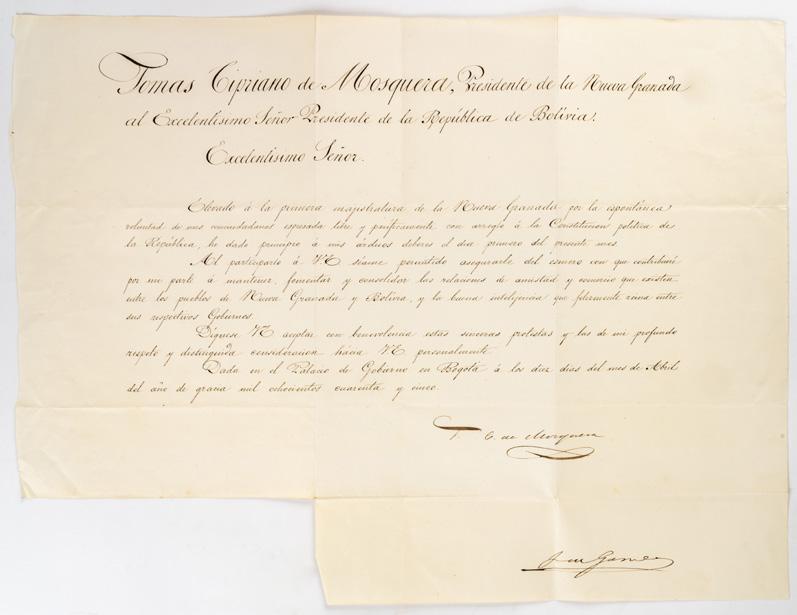 Tomas Cipriano de Mosquera, Presidente de la Nueva Granada
al Excelentisimo Señor Presidente de la República de Bolivia.
Excelentisimo Señor.
Elevado á la primera majistratura de la Nueva Granada por la espontánea
voluntad de mis conciudadanos espresada libre y pacíficamente con arreglo á la Constitucion política de
la República, he dado principio á mis árduos deberes el dia primero del presente mes.
Al participarlo á VE séame permitido asegurarle del esmero con que contribuiré
por mi parte á mantener, fomentar y consolidar las relaciones de amistad y comercio que existen
entre los pueblos de Nueva Granada y Bolivia, y la buena intelijencia que felizmente reina entre
sus respectivos Gobiernos.
Dígnese VE aceptar con benevolencia estas sinceras protestas y las de mi profundo
respeto y distinguida consideracion hácia VE personalmente.
Dada en el Palacio de Gobierno en Bogotá á los diez dias del mes de Abril
del año de gracia mil ochocientos cuarenta y cinco.
T. C. de Mosquera